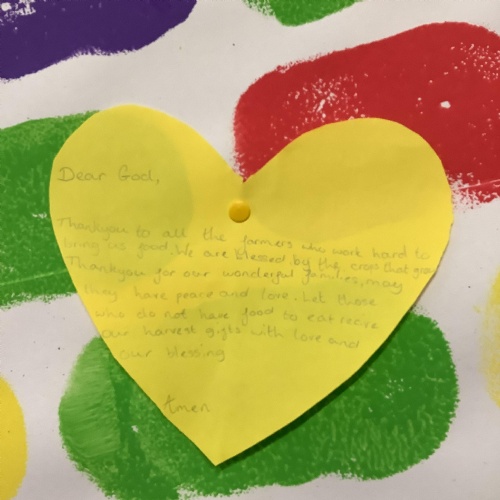 Dear God,
Thankyou to all the farmers who work hard to
bring us food. We are blessed by the crops that grow
Thankyou for our wonderful families, may
they have peace and love. Let those
who do not have food to eat recive
our harvest gifts with love and
our blessing
Amen